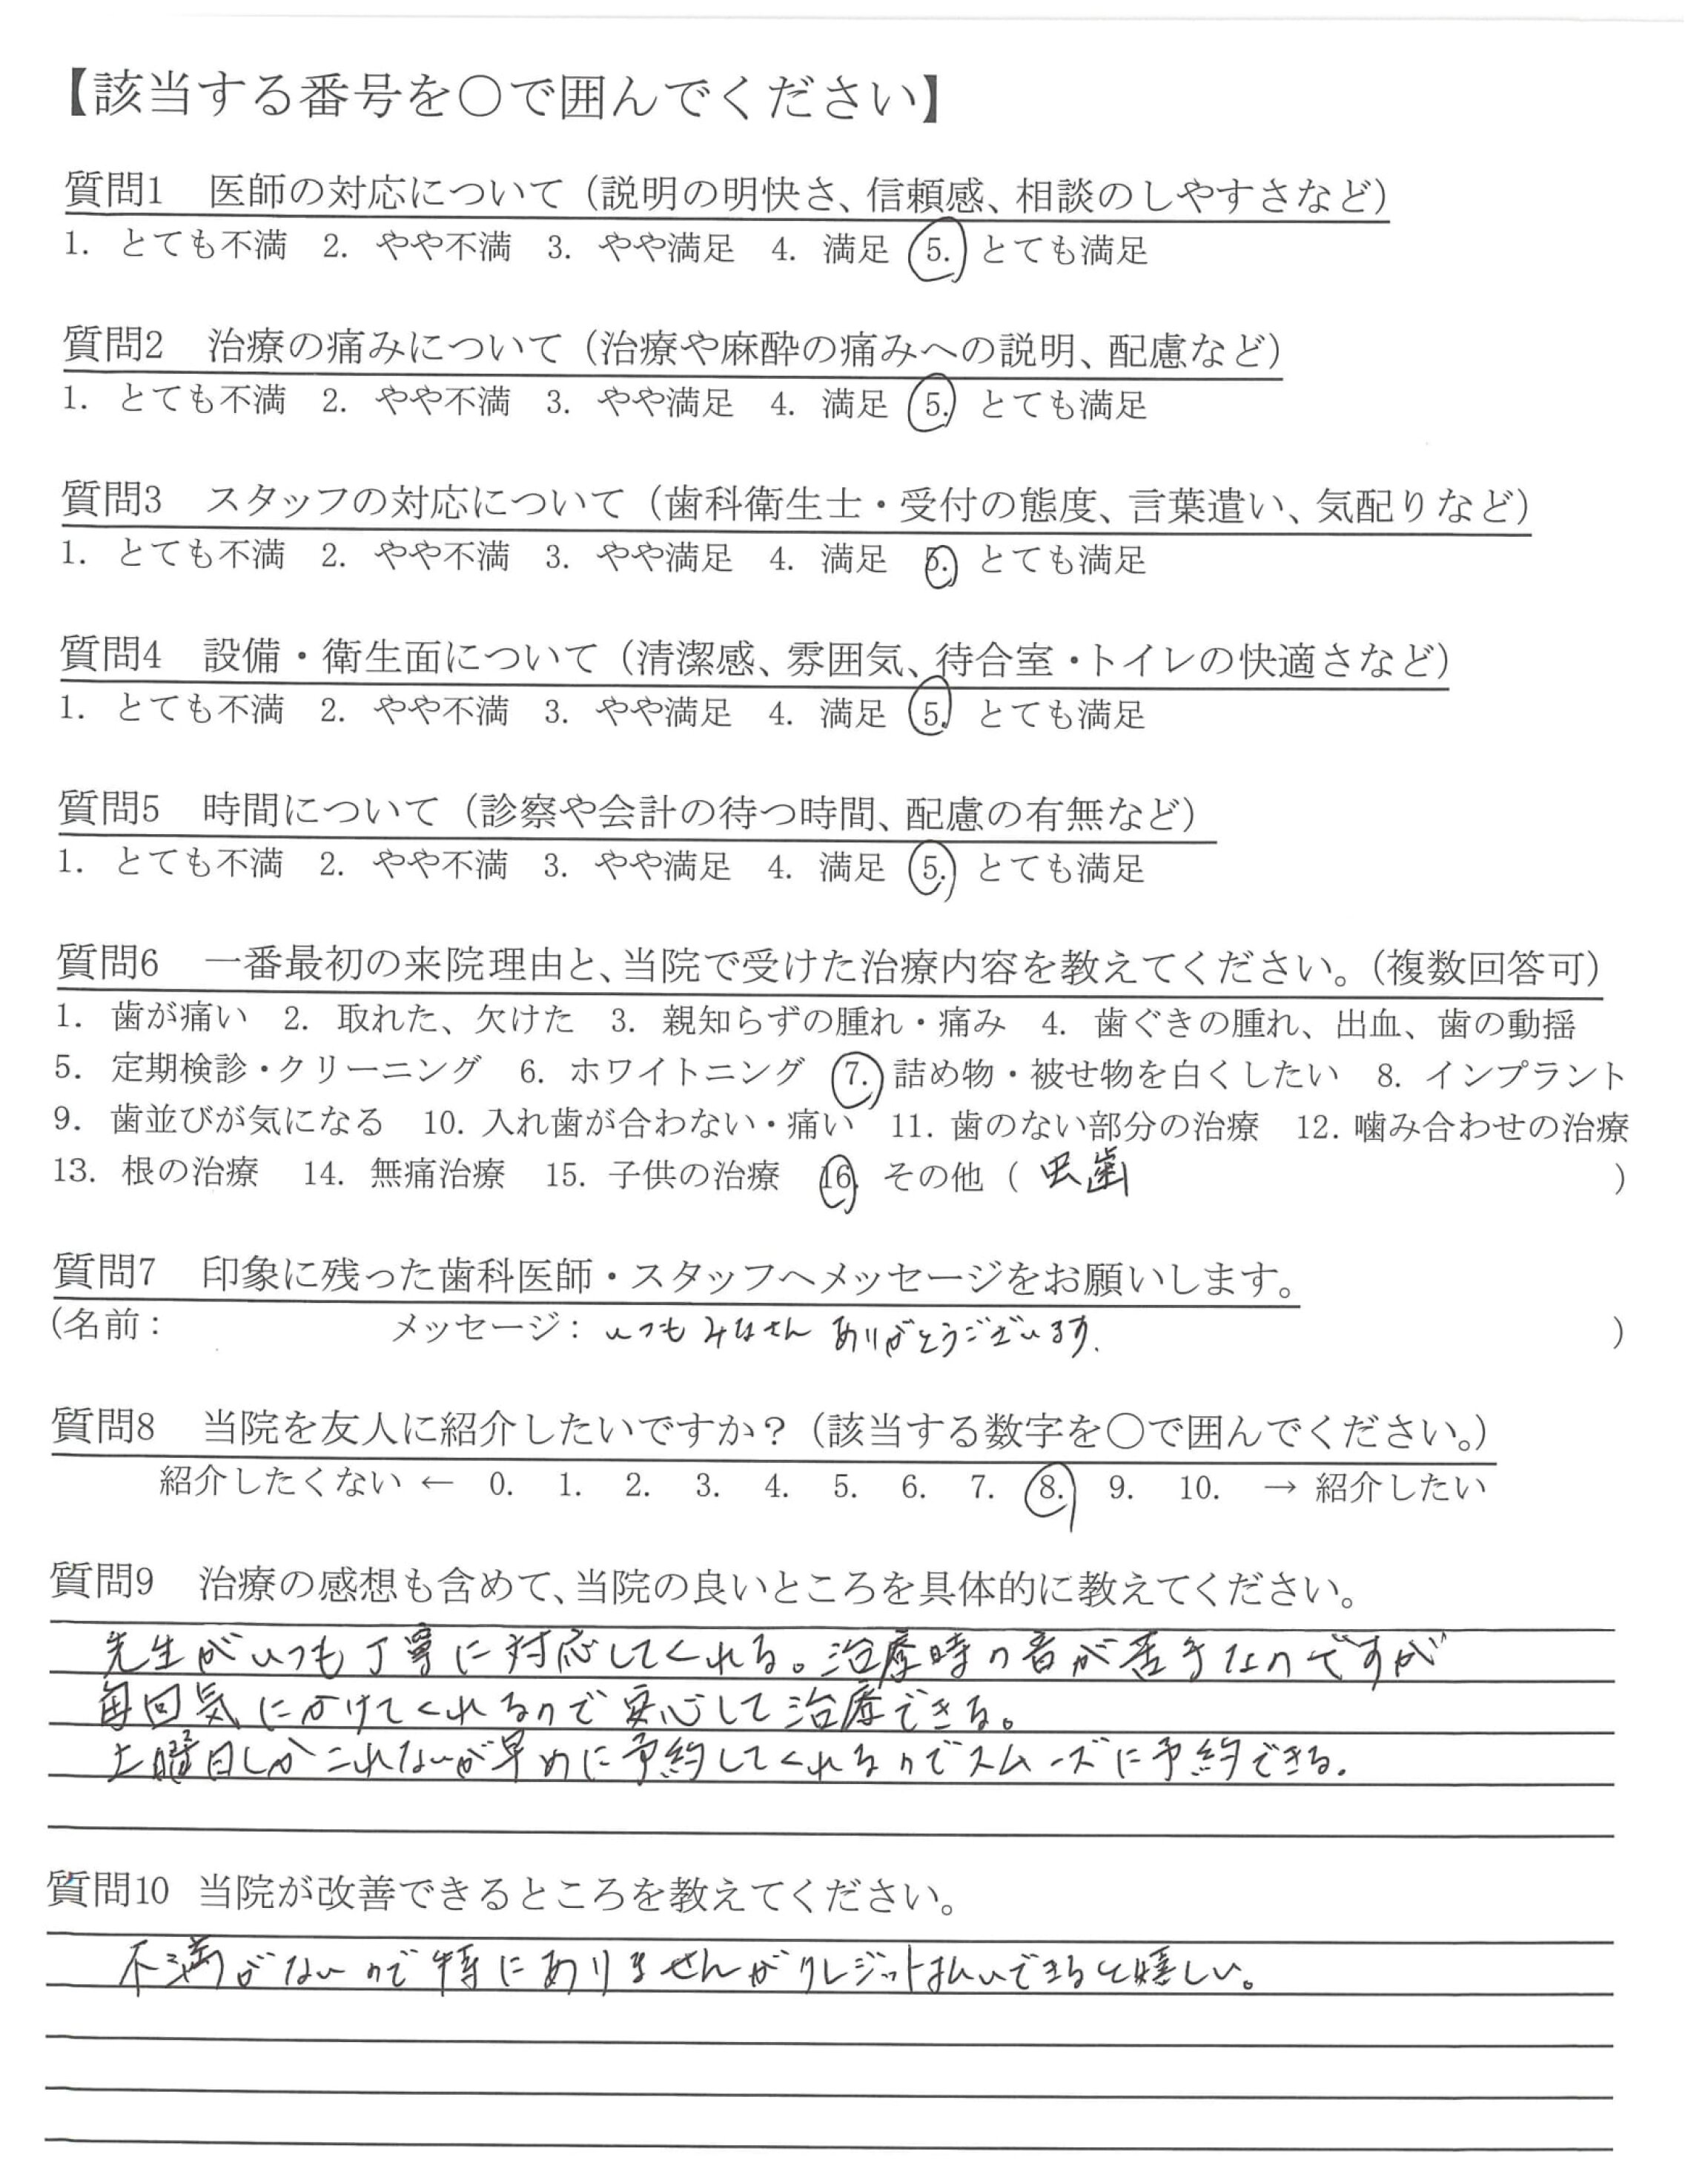 【該当する番号を○で囲んでください】
質問1 医師の対応について（説明の明快さ、信頼感、相談のしやすさなど）
1. とても不満 2. やや不満 3. やや満足 4. 満足 5. とても満足
質問2 治療の痛みについて（治療や麻酔の痛みへの説明、配慮など）
1. とても不満 2. やや不満 3. やや満足 4. 満足 5. とても満足
質問3 スタッフの対応について（歯科衛生士・受付の態度、言葉遣い、気配りなど）
1. とても不満 2. やや不満 3. やや満足 4. 満足 5. とても満足
質問4 設備・衛生面について（清潔感、雰囲気、待合室・トイレの快適さなど）
1. とても不満 2. やや不満 3. やや満足 4. 満足 5. とても満足
質問5 時間について（診察や会計の待つ時間、配慮の有無など）
1. とても不満 2. やや不満 3. やや満足 4. 満足 5. とても満足
質問6 一番最初の来院理由と、当院で受けた治療内容を教えてください。（複数回答可）
1. 歯が痛い 2. 取れた、欠けた 3. 親知らずの腫れ・痛み 4. 歯ぐきの腫れ、出血、歯の動揺
5. 定期検診・クリーニング 6. ホワイトニング 7. 詰め物・被せ物を白くしたい 8. インプラント
9. 歯並びが気になる 10. 入れ歯が合わない・痛い 11. 歯のない部分の治療 12. 噛み合わせの治療
13. 根の治療 14. 無痛治療 15. 子供の治療 16. その他（ 虫歯 ）
質問7 印象に残った歯科医師・スタッフへメッセージをお願いします。
（名前： メッセージ：いつもみなさん ありがとうございます. ）
質問8 当院を友人に紹介したいですか？（該当する数字を○で囲んでください。）
紹介したくない ← 0. 1. 2. 3. 4. 5. 6. 7. 8. 9. 10. → 紹介したい
質問9 治療の感想も含めて、当院の良いところを具体的に教えてください。
先生がいつも丁寧に対応してくれる。治療時の音が苦手なのですが
毎回気にかけてくれるので安心して治療できる。
土曜日しかこれないが早めに予約してくれるのでスムーズに予約できる.
質問10 当院が改善できるところを教えてください。
不満がないので特にありませんがクレジット払いできると嬉しい。